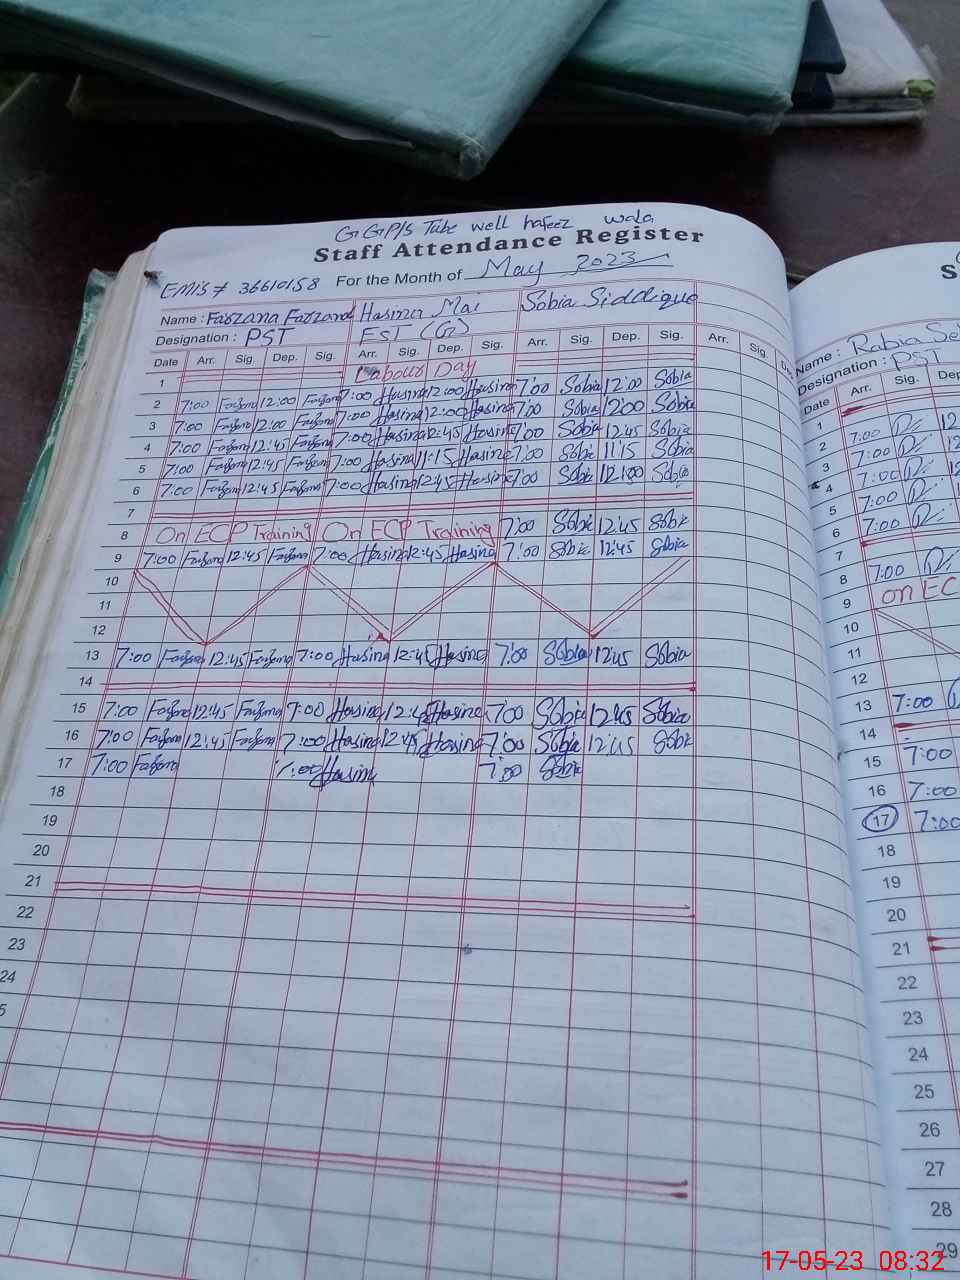 GGP/S Tube well hafeez wala
Staff Attendance Register
EMIS # 36610158 For the Month of May 2023
Name : Farzana Farzand Hasina Mai Sobia Siddique
Designation : PST EST (G)
Date Arr. Sig. Dep. Sig. Arr. Sig. Dep. Sig. Arr. Sig. Dep. Sig. Arr. Sig.
1 Labour Day
2 7:00 12:00 7:00 Hasina 12:00 Hasina 7:00 Sobia 12:00 Sobia
3 7:00 12:00 7:00 Hasina 12:00 Hasina 7:00 Sobia 12:00 Sobia
4 7:00 12:45 7:00 Hasina 12:45 Hasina 7:00 Sobia 12:45 Sobia
5 7:00 12:45 7:00 Hasina 11:15 Hasina 7:00 Sobia 11:15 Sobia
6 7:00 12:45 7:00 Hasina 12:45 Hasina 7:00 Sobia 12:00 Sobia
7
8 On ECP Training On ECP Training 7:00 Sobia 12:45 Sobia
9 7:00 12:45 7:00 Hasina 12:45 Hasina 7:00 Sobia 12:45 Sobia
10
11
12
13 7:00 12:45 7:00 Hasina 12:45 Hasina 7:00 Sobia 12:45 Sobia
14
15 7:00 12:45 7:00 Hasina 12:45 Hasina 7:00 Sobia 12:45 Sobia
16 7:00 12:45 7:00 Hasina 12:45 Hasina 7:00 Sobia 12:45 Sobia
17 7:00 7:00 Hasina 7:00 Sobia
18
19
20
21
22
23
24
5
S
Name : Rabia
Designation : PST
Date Arr. Sig.
1
2 7:00 12
3 7:00 12
4 7:00
5 7:00
6 7:00
7
8 7:00
9 on EC
10
11
12
13 7:00
14
15 7:00
16 7:00
17 7:00
18
19
20
21
22
23
24
25
26
27
28
29
17-05-23 08:32